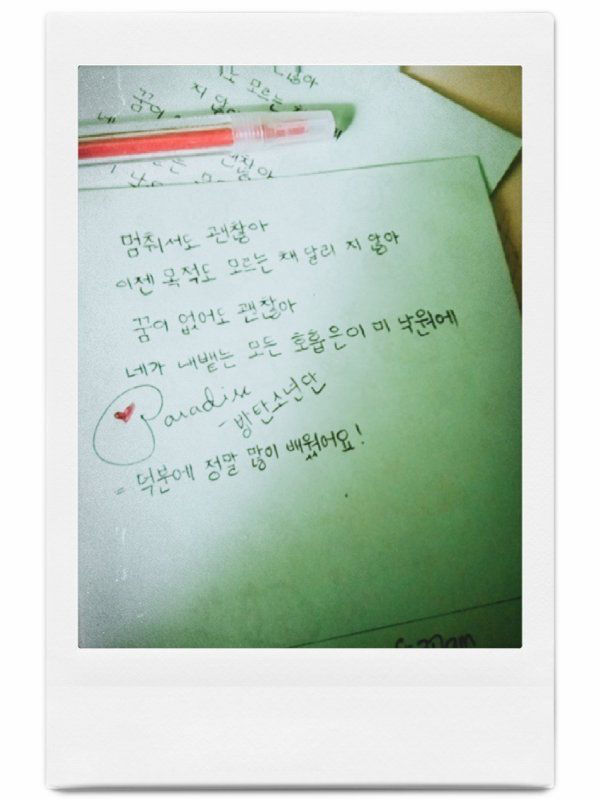 꿈이
지 않아
모르는
멈춰서도 괜찮아
이젠 목적도 모르는 채 달리 지 않아
꿈이 없어도 괜찮아
네가 내뱉는 모든 호흡은이 미 낙원에
Paradise
- 방탄소년단
= 덕분에 정말 많이 배웠어요!